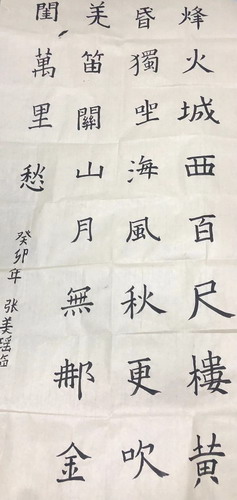 烽火城西百尺樓黄
昏獨坐海風秋更吹
羌笛關山月無那金
閨萬里愁
癸卯年 张美瑶